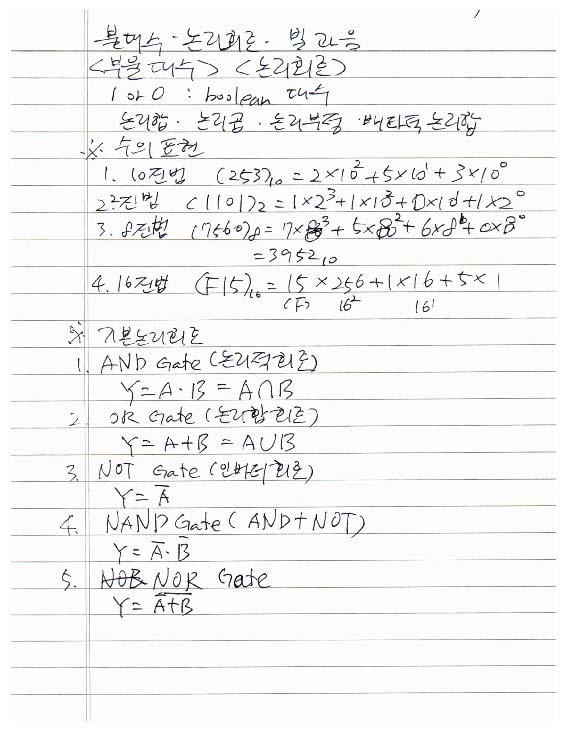 불대수 · 논리회로 · 빌 과음
<부울 대수> <논리회로>
1 or 0 : boolean 대수
논리합 · 논리곱 · 논리부정 · 배타적 논리합
※ 수의 표현
1. 10진법 (253)₁₀ = 2×10² + 5×10¹ + 3×10⁰
2. 2진법 (1101)₂ = 1×2³ + 1×10² + 0×10¹ + 1×2⁰
3. 8진법 (7560)₈ = 7×8³ + 5×8² + 6×8¹ + 0×8⁰
= 3952₁₀
4. 16진법 (F15)₁₆ = 15 × 256 + 1×16 + 5×1
(F) 16² 16¹
※ 기본논리회로
1. AND Gate (논리적회로)
Y = A · B = A∩B
2. OR Gate (논리합회로)
Y = A + B = A∪B
3. NOT Gate (인버터회로)
Y = A̅
4. NAND Gate ( AND + NOT )
Y = A̅ · B̅
5. NOR Gate
Y = A̅+̅B̅